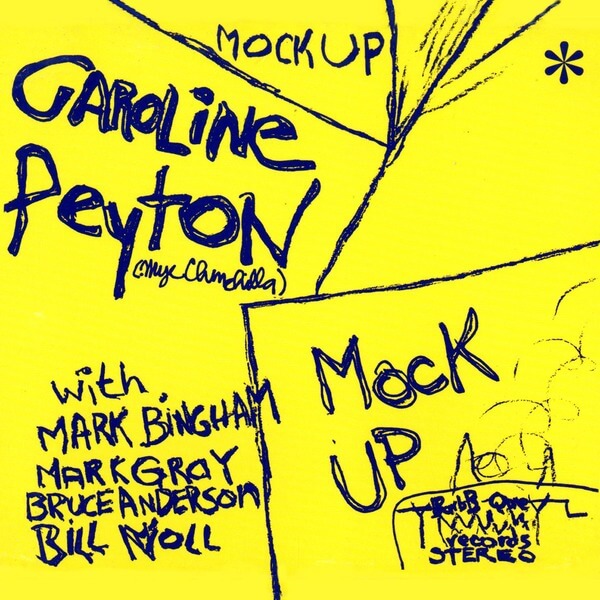 MOCK UP
*
CAROLINE
PEYTON
with
MARK BINGHAM
MARK GRAY
BRUCE ANDERSON
BILL NOLL
MOCK
UP
BarbB-Que
records
STEREO